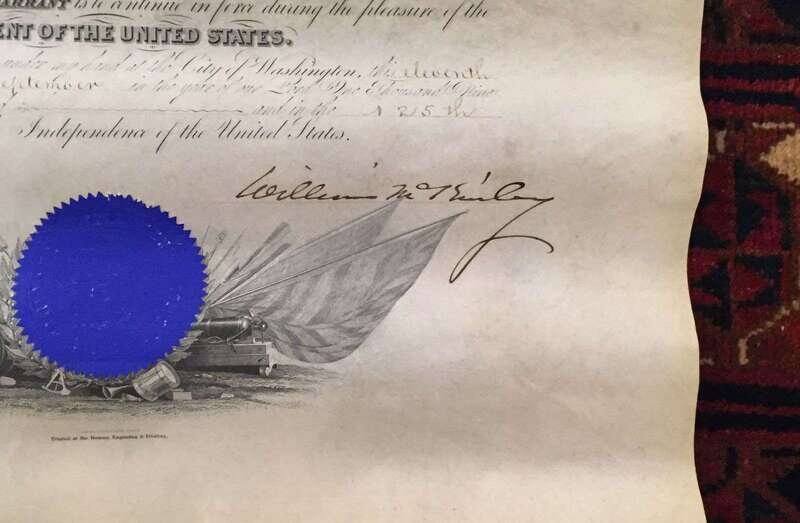 WARRANT is to continue in force during the pleasure of the
ENT OF THE UNITED STATES.
under my hand at the City of Washington, this eleventh
September in the year of our Lord One Thousand Nine
and in the 125th
Independence of the United States.
William McKinley
Printed at the Bureau, Engraving & Printing.